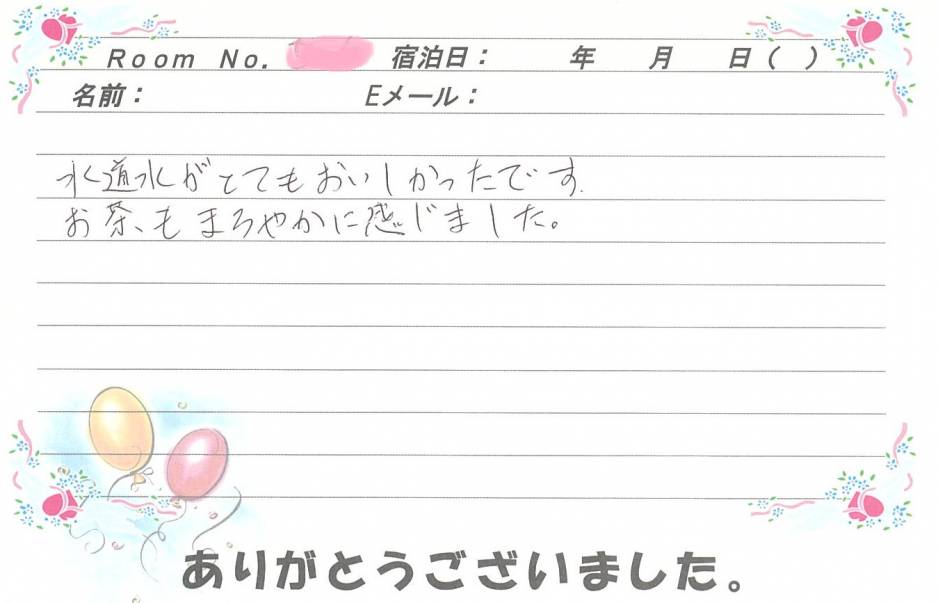 Room No. 宿泊日： 年 月 日（ ）
名前： Eメール：
水道水がとてもおいしかったです.
お茶、もまろやかに感じました。
ありがとうございました。